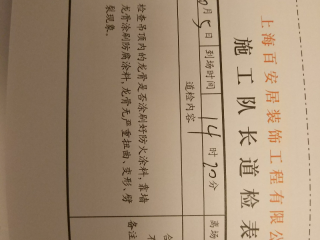 上海百安居装饰工程有限公
施工队长道检表
月5日 到场时间 14时20分 离场
道检内容
检查吊顶内的龙骨是否涂刷好防火涂料,靠墙
龙骨涂刷防腐涂料,龙骨无严重扭曲、变形、劈
裂现象。
备注